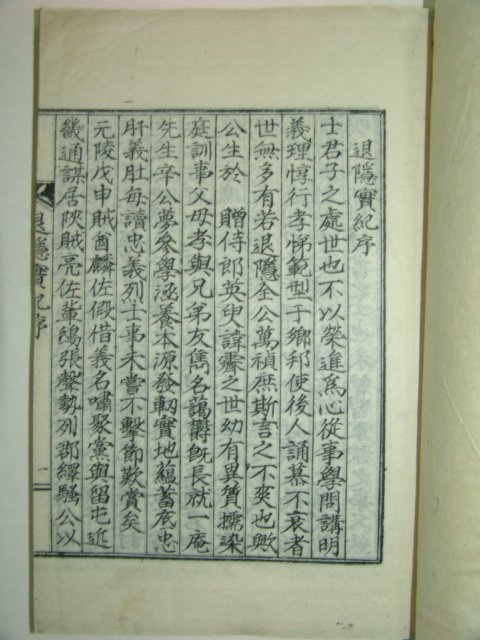 退隱實紀序
士君子之處世也不以榮進爲心從事學問講明
義理惇行孝悌範型于鄉邦使後人誦慕不衰者
世無多有若退隱全公萬禎庶斯言之不爽也歟
公生於 贈侍郎英印諱霽之世幼有異質擩染
庭訓事父母孝與兄弟友雋名藹欝旣長就一庵
先生辛公夢參學涵養本源發軔實地蘊蓄底忠
肝義肚每讀忠義列士事未嘗不擊節歎賞矣
元陵戊申賊酋麟佐假借義名嘯聚黨與留屯近
畿通謀居陜賊亮佐輩鴟張聲勢列郡繹騷公以
退隱實紀序
一